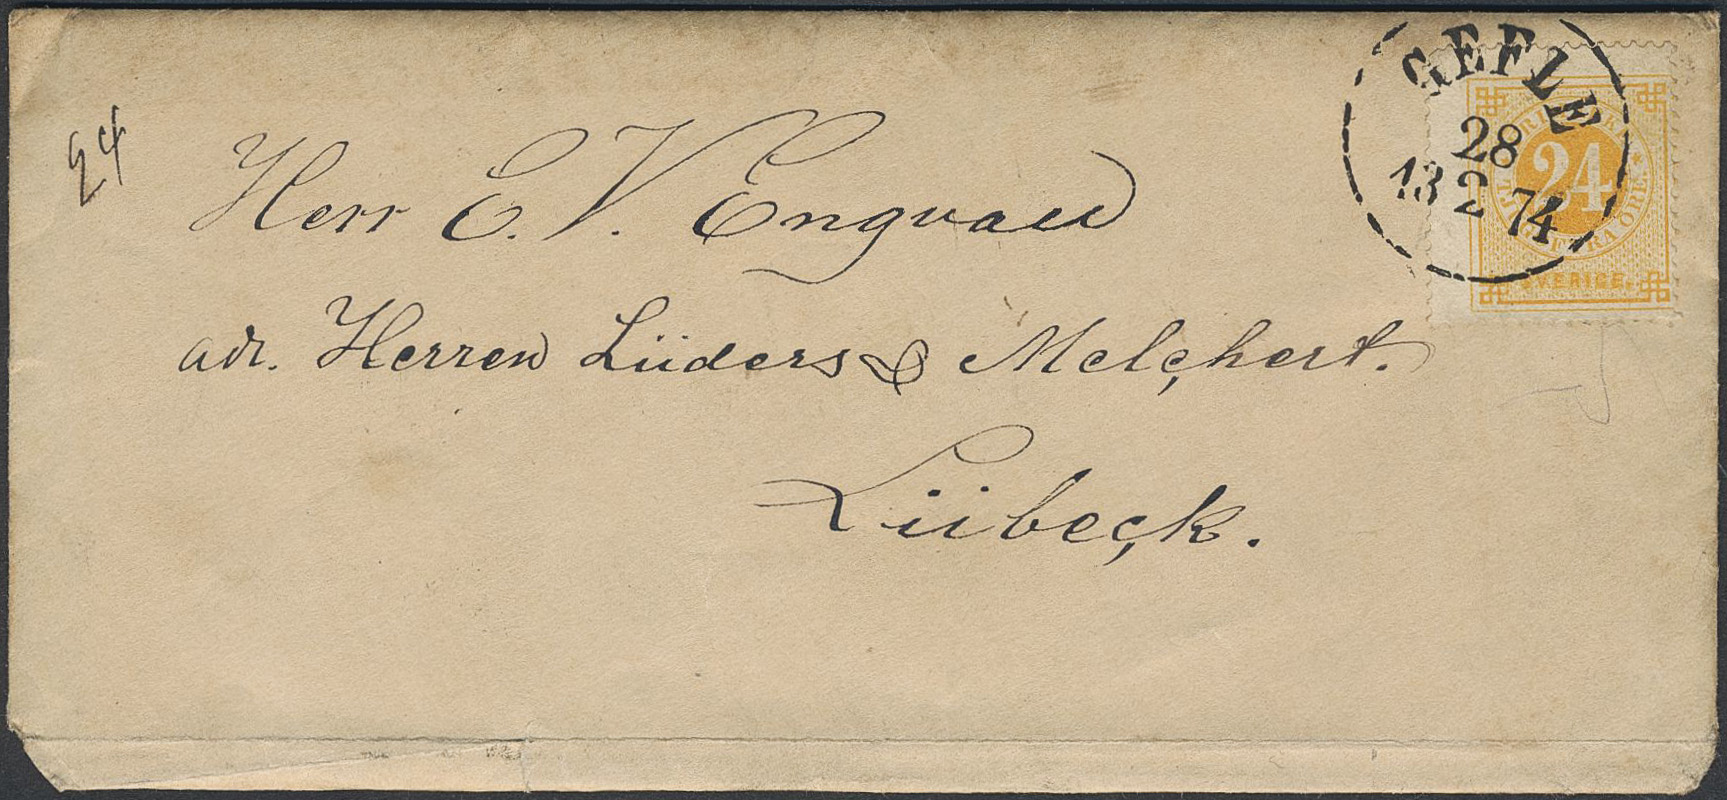 GEFLE
28
13 2 74
24
SVERIGE.
24
Herr E. V. Engvall
adr. Herren Lüders & Melchert.
Lübeck.